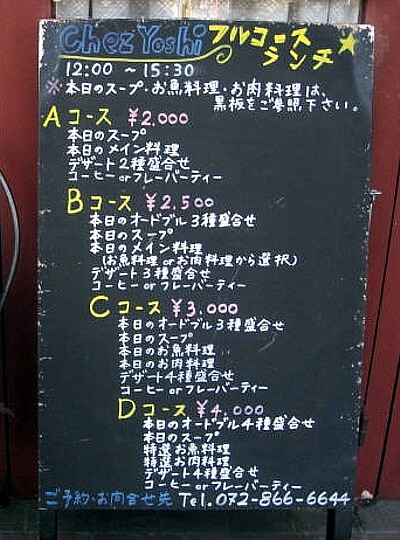 Chez Yoshi フルコース ランチ★
12:00 ~15:30
※本日のスープ・お魚料理・お肉料理は、
黒板をご参照下さい。
Aコース ¥2,000
本日のスープ
本日のメイン料理
デザート2種盛合せ
コーヒーorフレーバーティー
Bコース ¥2,500
本日のオードブル3種盛合せ
本日のスープ
本日のメイン料理
(お魚料理orお肉料理から選択)
デザート3種盛合せ
コーヒーorフレーバーティー
Cコース ¥3,000
本日のオードブル3種盛合せ
本日のスープ
本日のお魚料理
本日のお肉料理
デザート4種盛合せ
コーヒーorフレーバーティー
Dコース ¥4,000
本日のオードブル4種盛合せ
本日のスープ
特選お魚料理
特選お肉料理
デザート4種盛合せ
コーヒーorフレーバーティー
ご予約・お問合せ先 Tel.072-866-6644